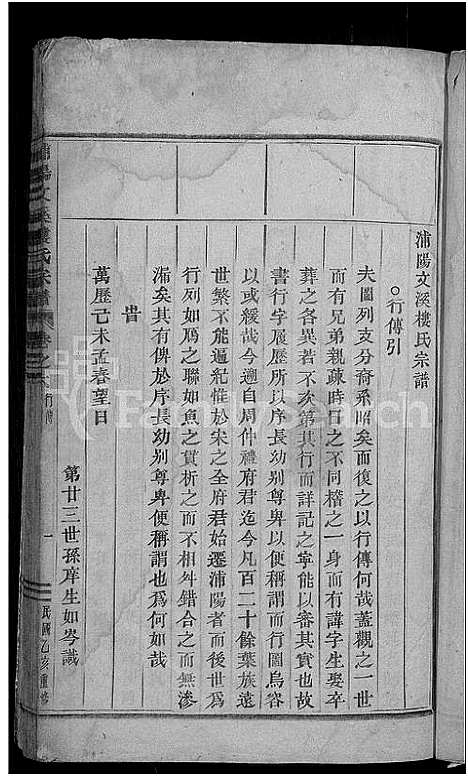 浦陽文溪樓氏宗譜
○行傳引
夫圖列支分裔系昭矣而復之以行傳何哉蓋觀之一世
而有兄弟親疎時日之不同稽之一身而有諱字生娶卒
葬之各異若不次第其行而詳記之寧能以審其實也故
書行字履歷所以序長幼別尊卑以便稱謂而行圖烏容
以或緩哉今遡自周仲禮府君迄今凡百二十餘葉族遠
世繁不能遍紀惟於宋之全府君始遷浦陽者而後世爲
行列如鴈之聯如魚之貫析之而不相舛錯合之而無滲
漏矣其有俾於序長幼別尊卑便稱謂也爲何如哉
旹
萬歷己未孟春望日
第廿三世孫庠生如岑識
浦陽文溪樓氏宗譜
卷之
行傳
一
民國乙亥重修
FamilySearch